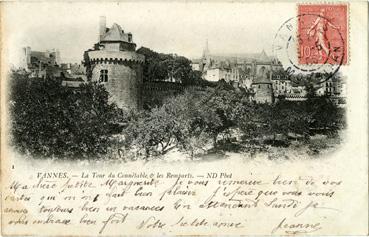 VANNES. — La Tour du Connétable & les Remparts. — ND Phot
Ma chère petite Marguerite je vous remercie bien de vos
cartes qui m'ont fait bien plaisir j'espère que vous vous
toujours bien en vacances Sainte je
vous embrasse bien fort Votre petite amie Jeanne